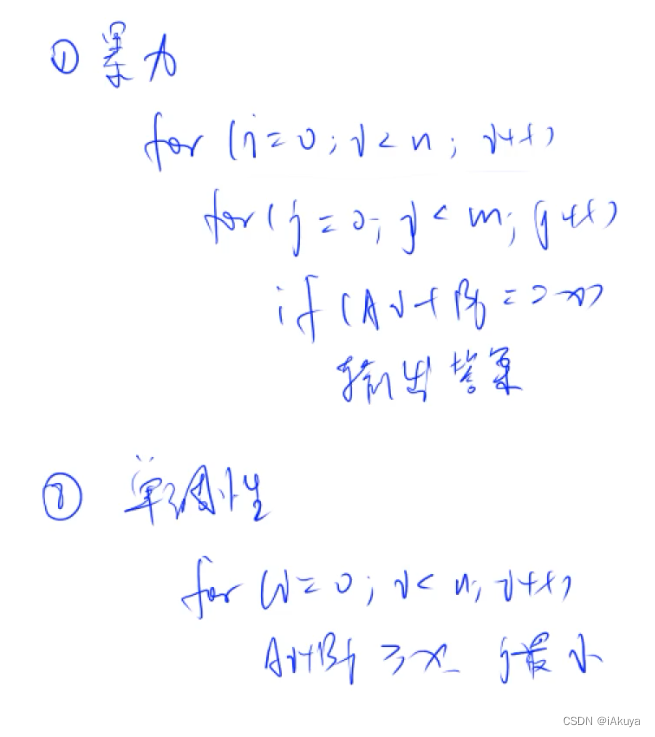 ① 暴力
for (i=0; i<n; i++)
for (j=0; j<m; j++)
if (Ai+Bj==x)
输出答案
② 单调性
for (i=0; i<n; i++)
Ai+Bj≥x j最小
CSDN @iAkuya